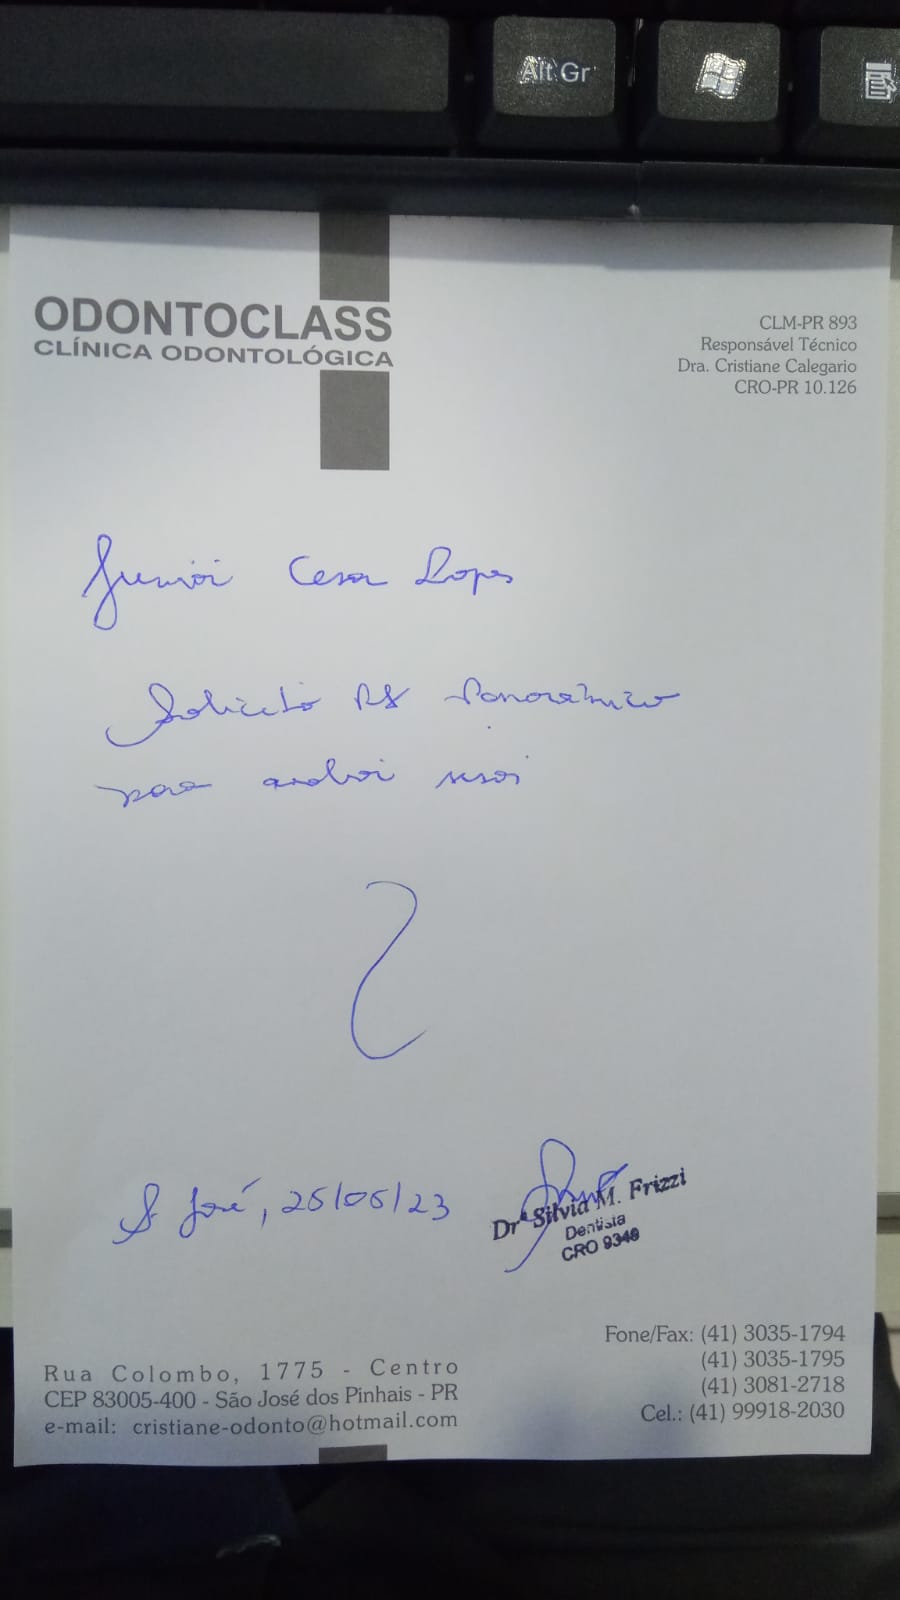 Alt Gr
ODONTOCLASS
CLÍNICA ODONTOLÓGICA
CLM-PR 893
Responsável Técnico
Dra. Cristiane Calegario
CRO-PR 10.126
Junior Cesar Lopes
Solicito RX Panorâmico
para
S. José, 25/05/23
Drª Silvia M. Frizzi
Dentista
CRO 9348
Fone/Fax: (41) 3035-1794
(41) 3035-1795
(41) 3081-2718
Cel.: (41) 99918-2030
Rua Colombo, 1775 - Centro
CEP 83005-400 - São José dos Pinhais - PR
e-mail: cristiane-odonto@hotmail.com